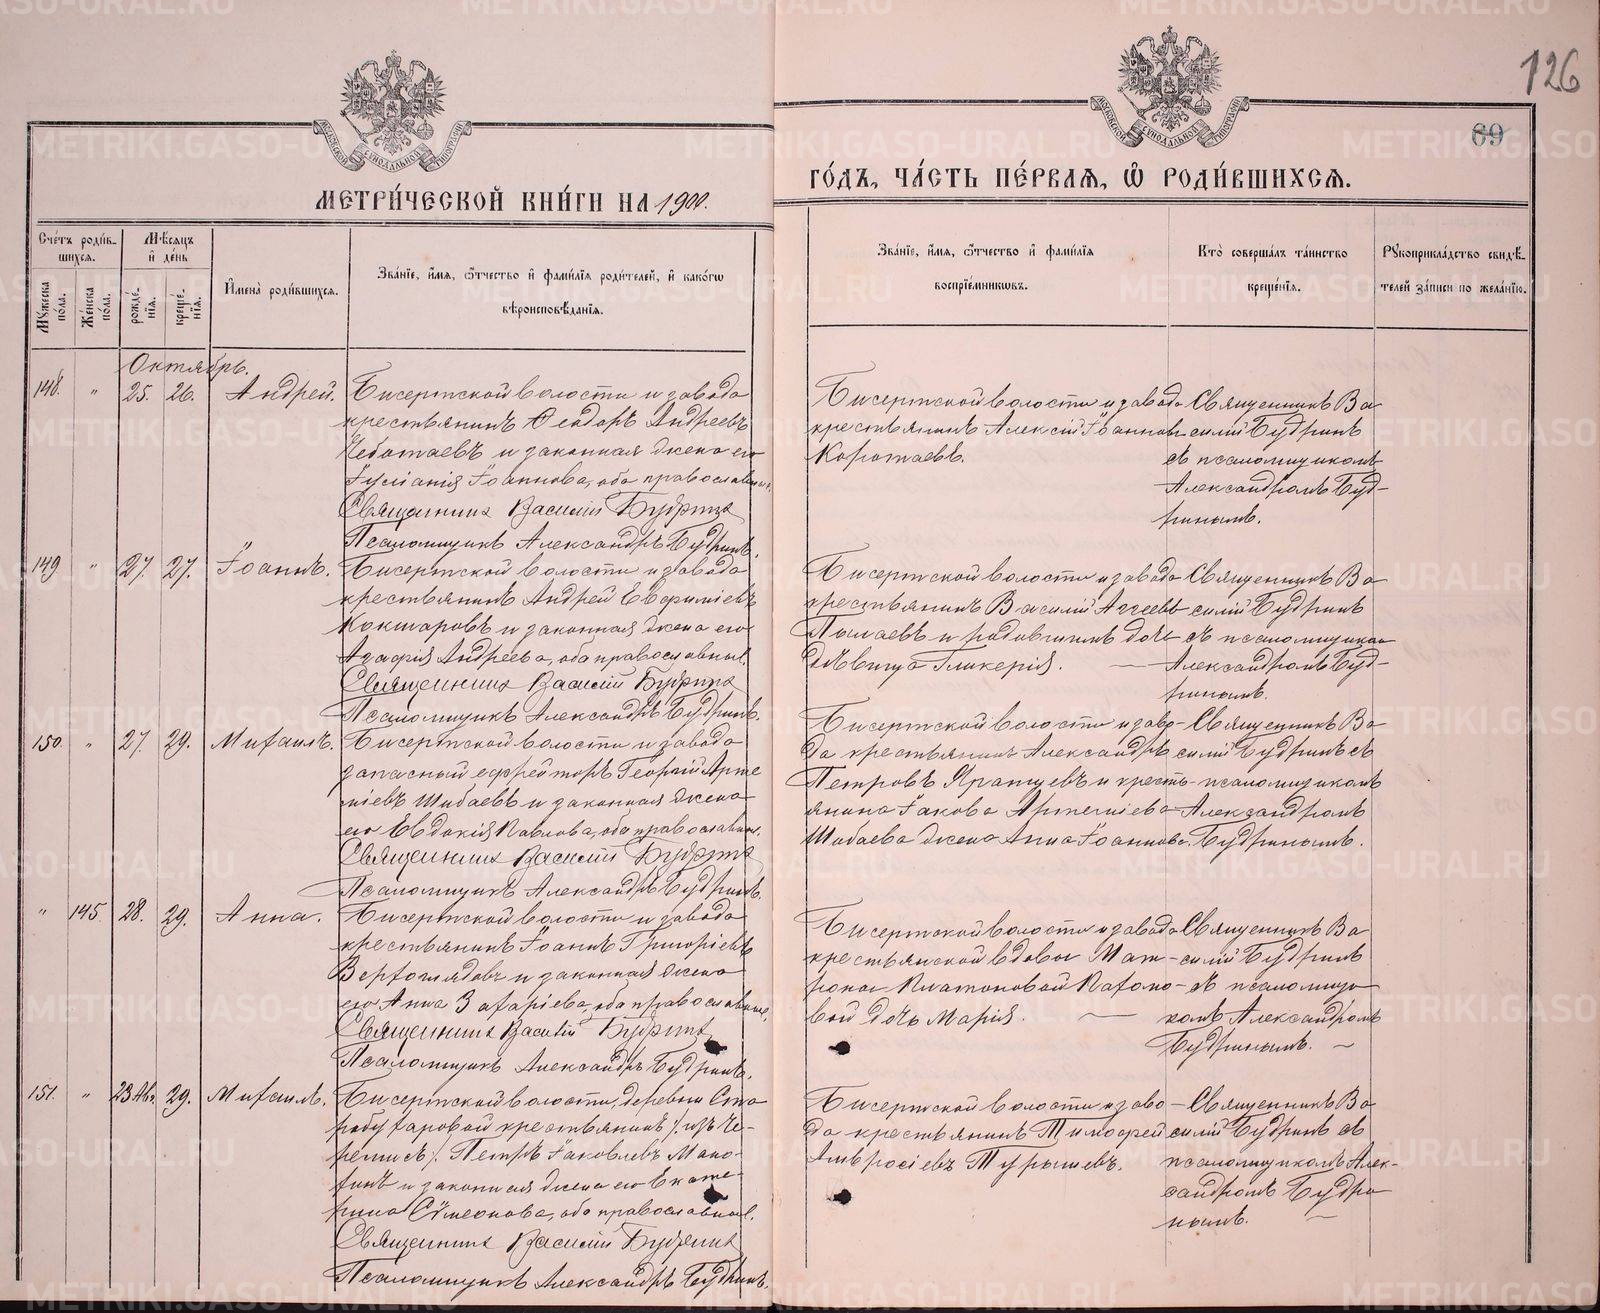 126
69
МЕТРИ́ЧЕСКОЙ КНИ́ГИ НА 1900.
ГО́ДЪ, ЧА́СТЬ ПЕ́РВАЯ, Ѽ РОДИ́ВШИХСЯ.
Сче́тъ роди́в-
шихся.
Мѣ́сяцъ
и҆ де́нь
Мꙋ́жеска по́ла.
Же́нска по́ла.
рожде́-нїя.
креще́-нїя.
И҆мена̀ роди́вшихся.
Зва́нїе, и҆́мя, ѻ҆́тчество и҆ фами́лїя роди́телей, и҆ како́гѡ
вѣроисповѣ́данїя.
Зва́нїе, и҆́мя, ѻ҆́тчество и҆ фами́лїя
воспрїе́мникѡвъ.
Кто̀ соверша́лъ та́инство
креще́нїя.
Рꙋкоприкла́дство свидѣ́-
телей за́писи по жела́нїю.
Октябрь.
148. " 25. 26. Андрей.
Бисертской волости и завода
крестьянинъ Ѳеодоръ Андреевъ
Чеботаевъ и законная жена его
Іуліанія Іоаннова, оба православные.
Священникъ Василій Будринъ
Псаломщикъ Александръ Будринъ.
Бисертской волости и завода
крестьянинъ Алексій Іоанновъ
Коротаевъ.
Священникъ Ва
силій Будринъ
съ псаломщикомъ
Александромъ Буд-
ринымъ.
149 " 27. 27. Іоаннъ.
Бисертской волости и завода
крестьянинъ Андрей Евфиміевъ
Кокшаровъ и законная жена его
Агафія Андреева, оба православные.
Священникъ Василій Будринъ
Псаломщикъ Александръ Будринъ.
Бисертской волости и завода
крестьянинъ Василій Аггеевъ
дѣвица Гликерія.
Священникъ Ва
силій Будринъ
съ псаломщикам
Александромъ Буд-
ринымъ.
150. " 27. 29. Михаилъ.
Бисертской волости и завода
запасный ефрейторъ Георгій Арте
міевъ Шибаевъ и законная жена
его Евдокія Павлова, оба православные.
Священникъ Василій Будринъ
Псаломщикъ Александръ Будринъ.
Бисертской волости и заво-
да крестьянинъ Александръ
Петровъ Яранцевъ и кресть-
янина Іакова Артеміева
Шибаева жена Анна Іоаннова.
Священникъ Ва-
силій Будринъ съ
псаломщикомъ
Александромъ
Будринымъ.
" 145. 28. 29. Анна.
Бисертской волости и завода
крестьянинъ Іоаннъ Григоріевъ
Верхоглядовъ и законная жена
его Анна Захаріева, оба православные.
Священникъ Василій Будринъ
Псаломщикъ Александръ Будринъ.
Бисертской волости и завода
крестьянской вдовы Мат-
роны Платоновой Пахомо-
вой дочь Марія.
Священникъ Ва
силій Будринъ
съ псаломщи
комъ Александромъ
Будринымъ.
151. " 23 29. Михаилъ.
Бисертской волости, деревни Ста
робухаровой крестьянинъ /изъ че-
ремисъ/. Петръ Іаковлевъ
и законная жена его Екате-
рина Сѵмеонова, оба православные.
Священникъ Василій Будринъ
Псаломщикъ Александръ Будринъ.
Бисертской волости и заво
да крестьянинъ Тимофей
Амвросіевъ Турышевъ.
Священникъ Ва
силій Будринъ съ
псаломщикомъ Алек-
сандромъ Будри
нымъ.
METRIKI.GASO-URAL.RU